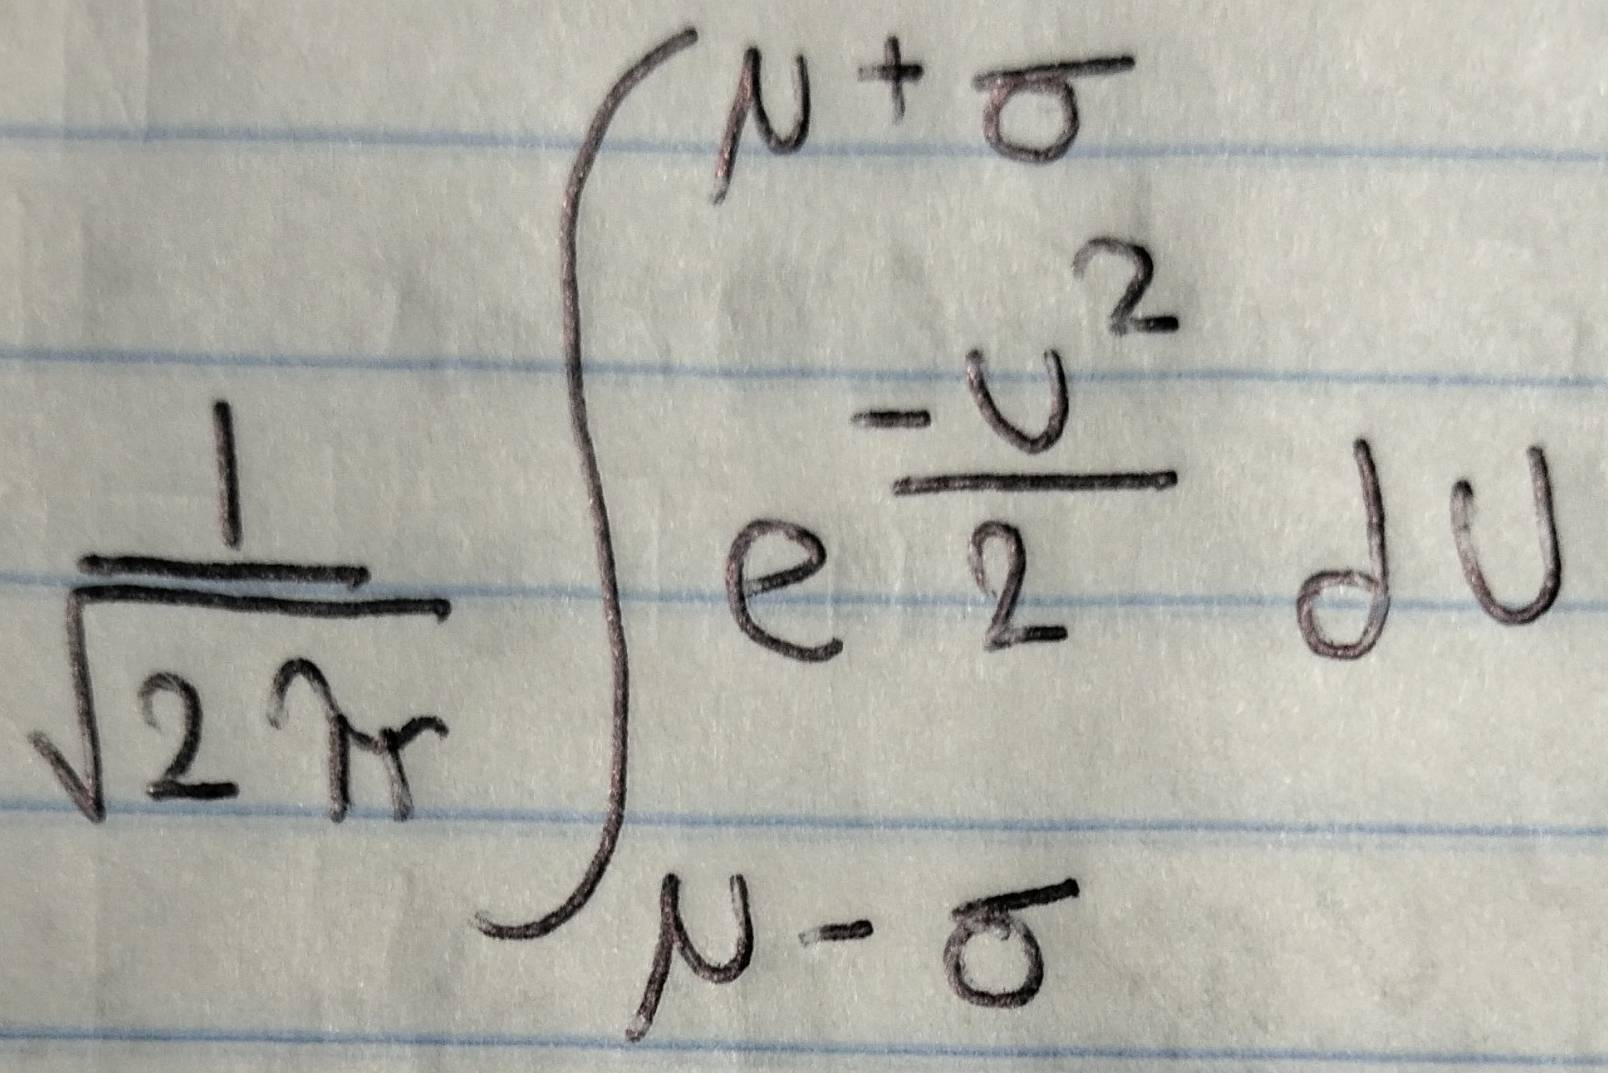 $$\frac{1}{\sqrt{2\pi}} \int_{\mu-\sigma}^{\mu+\sigma} e^{\frac{-U^2}{2}} dU$$